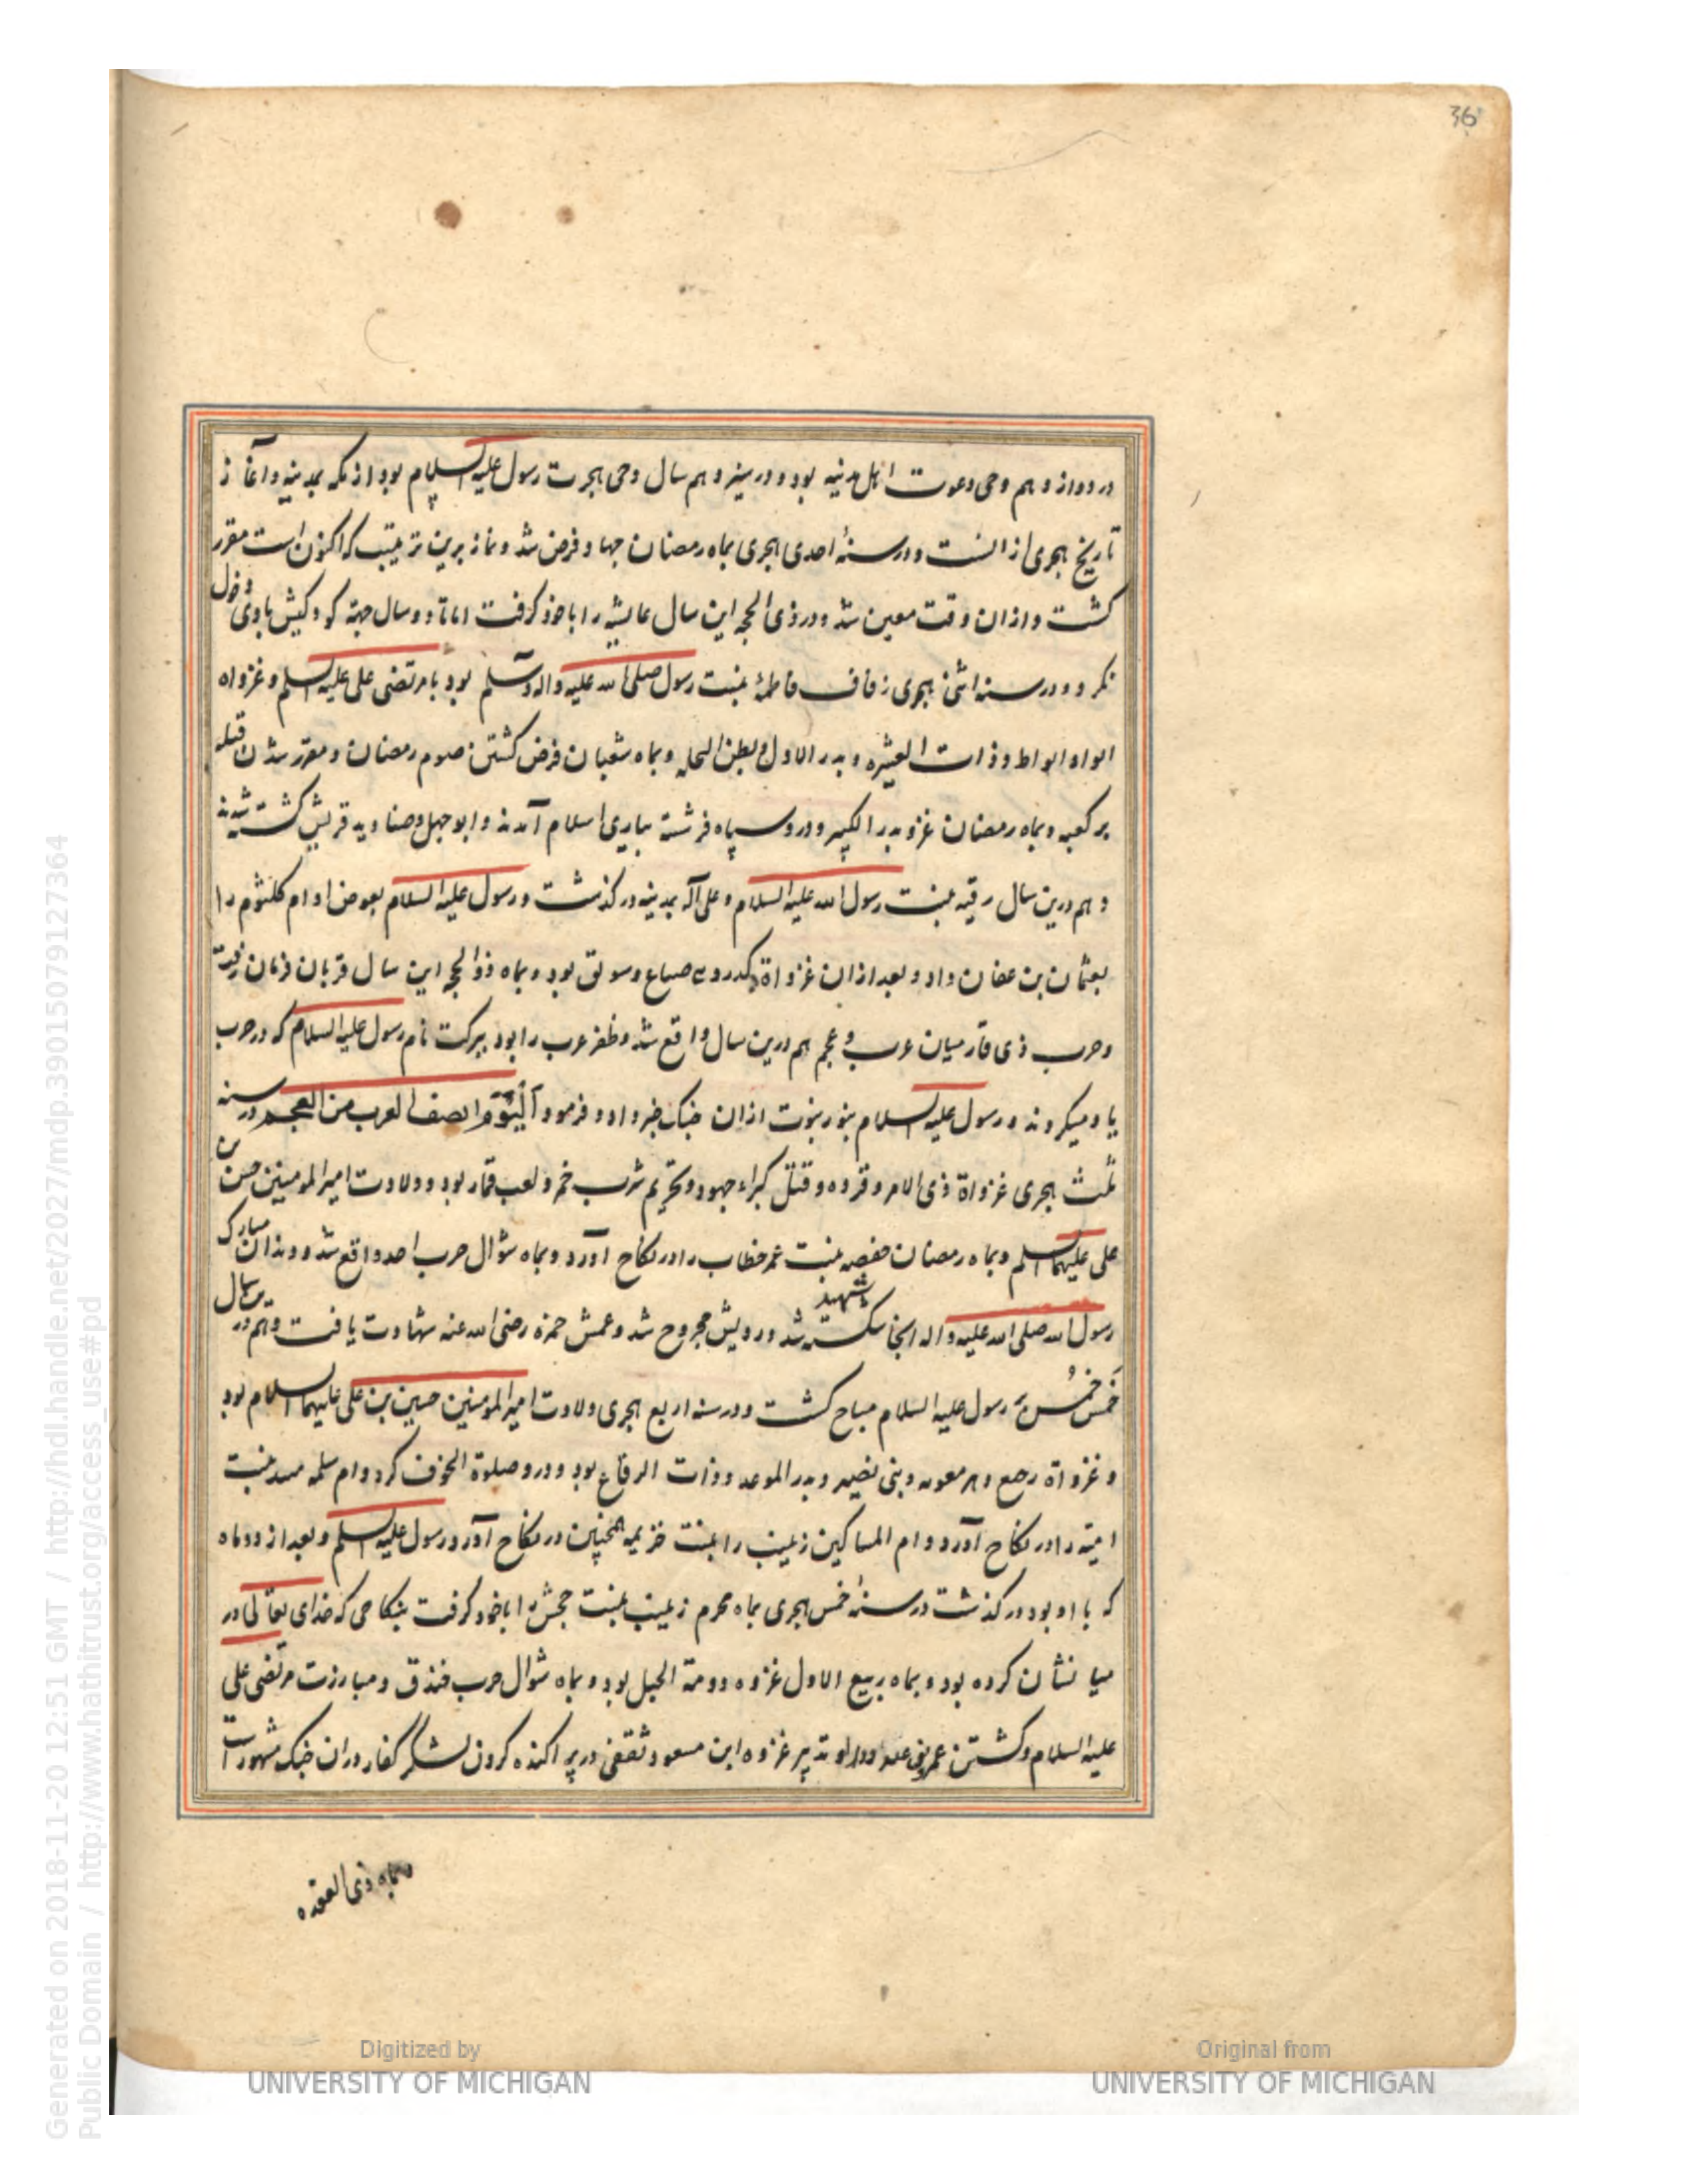 36
در دوازدهم وحی دعوت اهل مدینه بود و در سیزدهم سال وحی هجرت رسول علیه السلام بود از مکه بمدینه و آغاز
تاریخ هجری از انست و در سنهٔ احدی هجری بماه رمضان جهاد فرض شد و نماز برین ترتیب که اکنون است مقرر
کشت و از ان وقت معین شد و در ذی الحجه این سال عایشه را با خود کرفت اما تا دو سال جهة کودکیش با وی دخول
نکرد و در سنه اثنی هجری زفاف فاطمهٔ بنت رسول صلی الله علیه واله وسلم بود با مرتضی علی علیه السلم و غزواه
ابواء بواط و ذات العشیره و بدر الاول و بطن النخله و بماه شعبان فرض کشتن صوم رمضان و مقرر شدن قبله
بر کعبه و بماه رمضان غزو بدر الکبیر و درو سپاه فرشته بیاری اسلام آمدند و ابو جهل و صنادید قریش کشته شدند
و هم درین سال رقیه بنت رسول الله علیه السلام و علی آله بمدینه در کذشت و رسول علیه السلام بعوض او ام کلثوم را
بعثمان بن عفان داد و بعد از ان غزواة کدر و صباع و سویق بود و بماه ذو الحجه این سال قربان فرمان رفت
و حرب ذی قار میان عرب و عجم هم درین سال واقع شد و ظفر عرب را بود ببرکت نام رسول علیه السلام که در حرب
یاد میکردند و رسول علیه السلام بنور نبوت از ان جنک خبر داد و فرمود اَلْیَوْمَ انصف العرب من العجم در سنه
ثلث هجری غزواة ذی الامر و قرده و قتل کبراء جهود و تحریم شرب خمر و لعب قمار بود و ولادت امیر المومنین حسن بن
علی علیهما السلم و بماه رمضان حفصه بنت عمر خطاب را در نکاح آورد و بماه شوال حرب احد واقع شد و دندان مبارک
رسول الله صلی الله علیه واله انجا شکسته شد و رویش مجروح شد و عمش حمزه رضی الله عنه شهادت یافت و هم درین سال
خمس خمس بر رسول علیه السلام مباح کشت و در سنه اربع هجری ولادت امیر المومنین حسین بن علی علیهما السلام بود
و غزواة رجیع و بئر معونه و بنی نضیر و بدر الموعد و ذات الرقاع بود و درو صلوة الخوف کرد و ام سلمه بنت
امیّه را در نکاح آورد و ام المساکین زینب را بنت خزیمه همچنین در نکاح آورد رسول علیه السلم و بعد از دو ماه
که با او بود در کذشت در سنهٔ خمس هجری بماه محرم زینب بنت جحش را با خود کرفت بنکاحی که خدای تعالی در
میانشان کرده بود و بماه ربیع الاول غزوه دومة الجبل بود و بماه شوال حرب خندق و مبارزت مرتضی علی
علیه السلام و کشتن عمرو و تدبیر غزوه ابن مسعود ثقفی در پراکنده کردن لشکر کفار در ان جنک مشهور است
بماه ذی القعده
Generated on 2018-11-20 12:51 GMT / http://hdl.handle.net/2027/mdp.39015079127364
Public Domain / http://www.hathitrust.org/access_use#pd
Digitized by
UNIVERSITY OF MICHIGAN
Original from
UNIVERSITY OF MICHIGAN